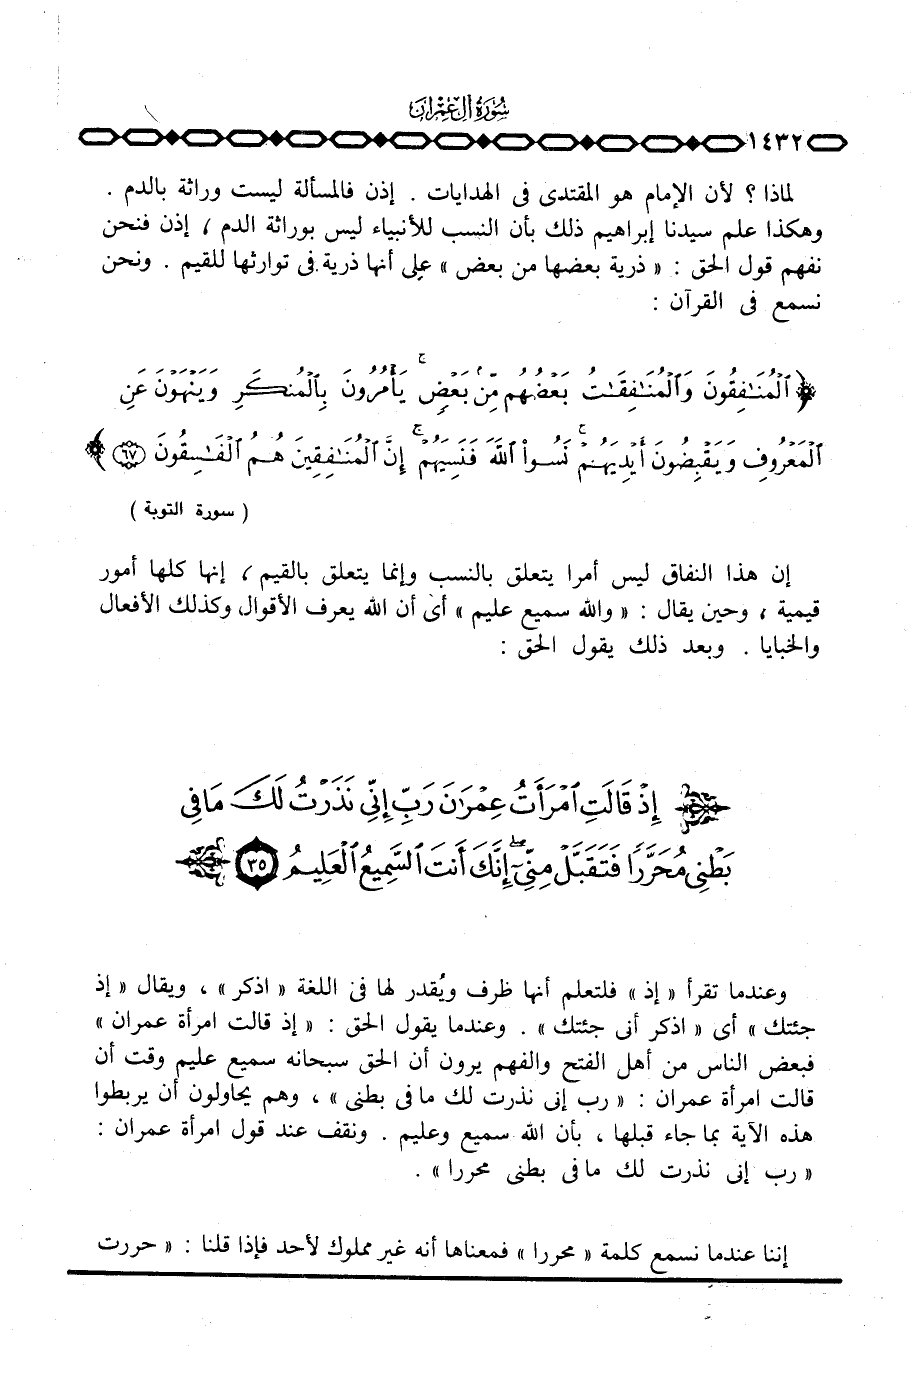 سُورَةُ آلِ عِمْرَانَ
١٤٣٢
لماذا ؟ لأن الإمام هو المقتدى فى الهدايات . إذن فالمسألة ليست وراثة بالدم .
وهكذا علم سيدنا إبراهيم ذلك بأن النسب للأنبياء ليس بوراثة الدم ، إذن فنحن
نفهم قول الحق : « ذرية بعضها من بعض » على أنها ذرية فى توارثها للقيم . ونحن
نسمع فى القرآن :
﴿ ٱلْمُنَٰفِقُونَ وَٱلْمُنَٰفِقَٰتُ بَعْضُهُم مِّنۢ بَعْضٍ ۚ يَأْمُرُونَ بِٱلْمُنكَرِ وَيَنْهَوْنَ عَنِ
ٱلْمَعْرُوفِ وَيَقْبِضُونَ أَيْدِيَهُمْ ۚ نَسُوا۟ ٱللَّهَ فَنَسِيَهُمْ ۚ إِنَّ ٱلْمُنَٰفِقِينَ هُمُ ٱلْفَٰسِقُونَ ٦٧ ﴾
( سورة التوبة )
إن هذا النفاق ليس أمرا يتعلق بالنسب وإنما يتعلق بالقيم ، إنها كلها أمور
قيمية ، وحين يقال : « والله سميع عليم » أى أن الله يعرف الأقوال وكذلك الأفعال
والخبايا . وبعد ذلك يقول الحق :
﴿ إِذْ قَالَتِ ٱمْرَأَتُ عِمْرَٰنَ رَبِّ إِنِّى نَذَرْتُ لَكَ مَا فِى
بَطْنِى مُحَرَّرًا فَتَقَبَّلْ مِنِّىٓ ۖ إِنَّكَ أَنتَ ٱلسَّمِيعُ ٱلْعَلِيمُ ٣٥ ﴾
وعندما تقرأ « إذ » فلتعلم أنها ظرف ويُقدر لها فى اللغة « اذكر » ، ويقال « إذ
جئتك » أى « اذكر أنى جئتك » . وعندما يقول الحق : « إذ قالت امرأة عمران »
فبعض الناس من أهل الفتح والفهم يرون أن الحق سبحانه سميع عليم وقت أن
قالت امرأة عمران : « رب إنى نذرت لك ما فى بطنى » ، وهم يحاولون أن يربطوا
هذه الآية بما جاء قبلها ، بأن الله سميع وعليم . ونقف عند قول امرأة عمران :
« رب إنى نذرت لك ما فى بطنى محررا » .
إننا عندما نسمع كلمة « محررا » فمعناها أنه غير مملوك لأحد فإذا قلنا : « حررت